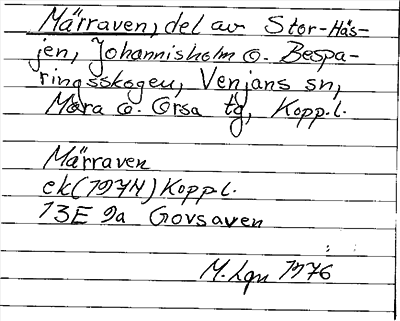 Märraven, del av Stor-Häs-
jen, Johannisholm o. Bespa-
ringsskogen, Venjans sn,
Mora o. Orsa tg, Kopp.l.
Märraven
ek (1974) Kopp.l.
13E 9a Govsaven
M. Lgn 1976